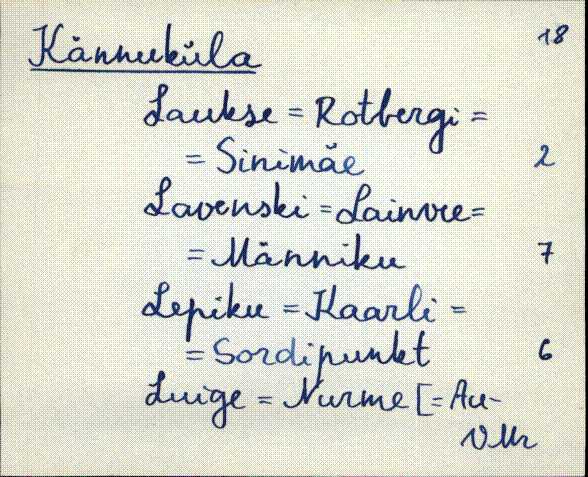 Kännuküla 18
Laukse = Rotbergi =
= Sinimäe 2
Lavenski = Lainvee =
= Männiku 7
Lepiku = Kaarli =
= Sordipunkt 6
Luige = Nurme [= Au-